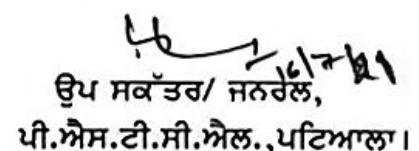 16/7/21
ਉਪ ਸਕੱਤਰ/ ਜਨਰਲ,
ਪੀ.ਐਸ.ਟੀ.ਸੀ.ਐਲ.,ਪਟਿਆਲਾ।